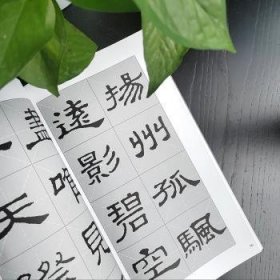 揚州孤颿
遠影碧空
盡唯見
天際